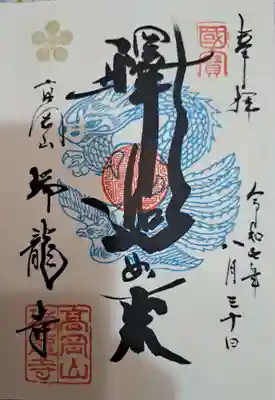 奉拝
國寶
令和七年
八月三十日
釋迦如来
高岡山
瑞龍寺
高岡山
瑞龍寺